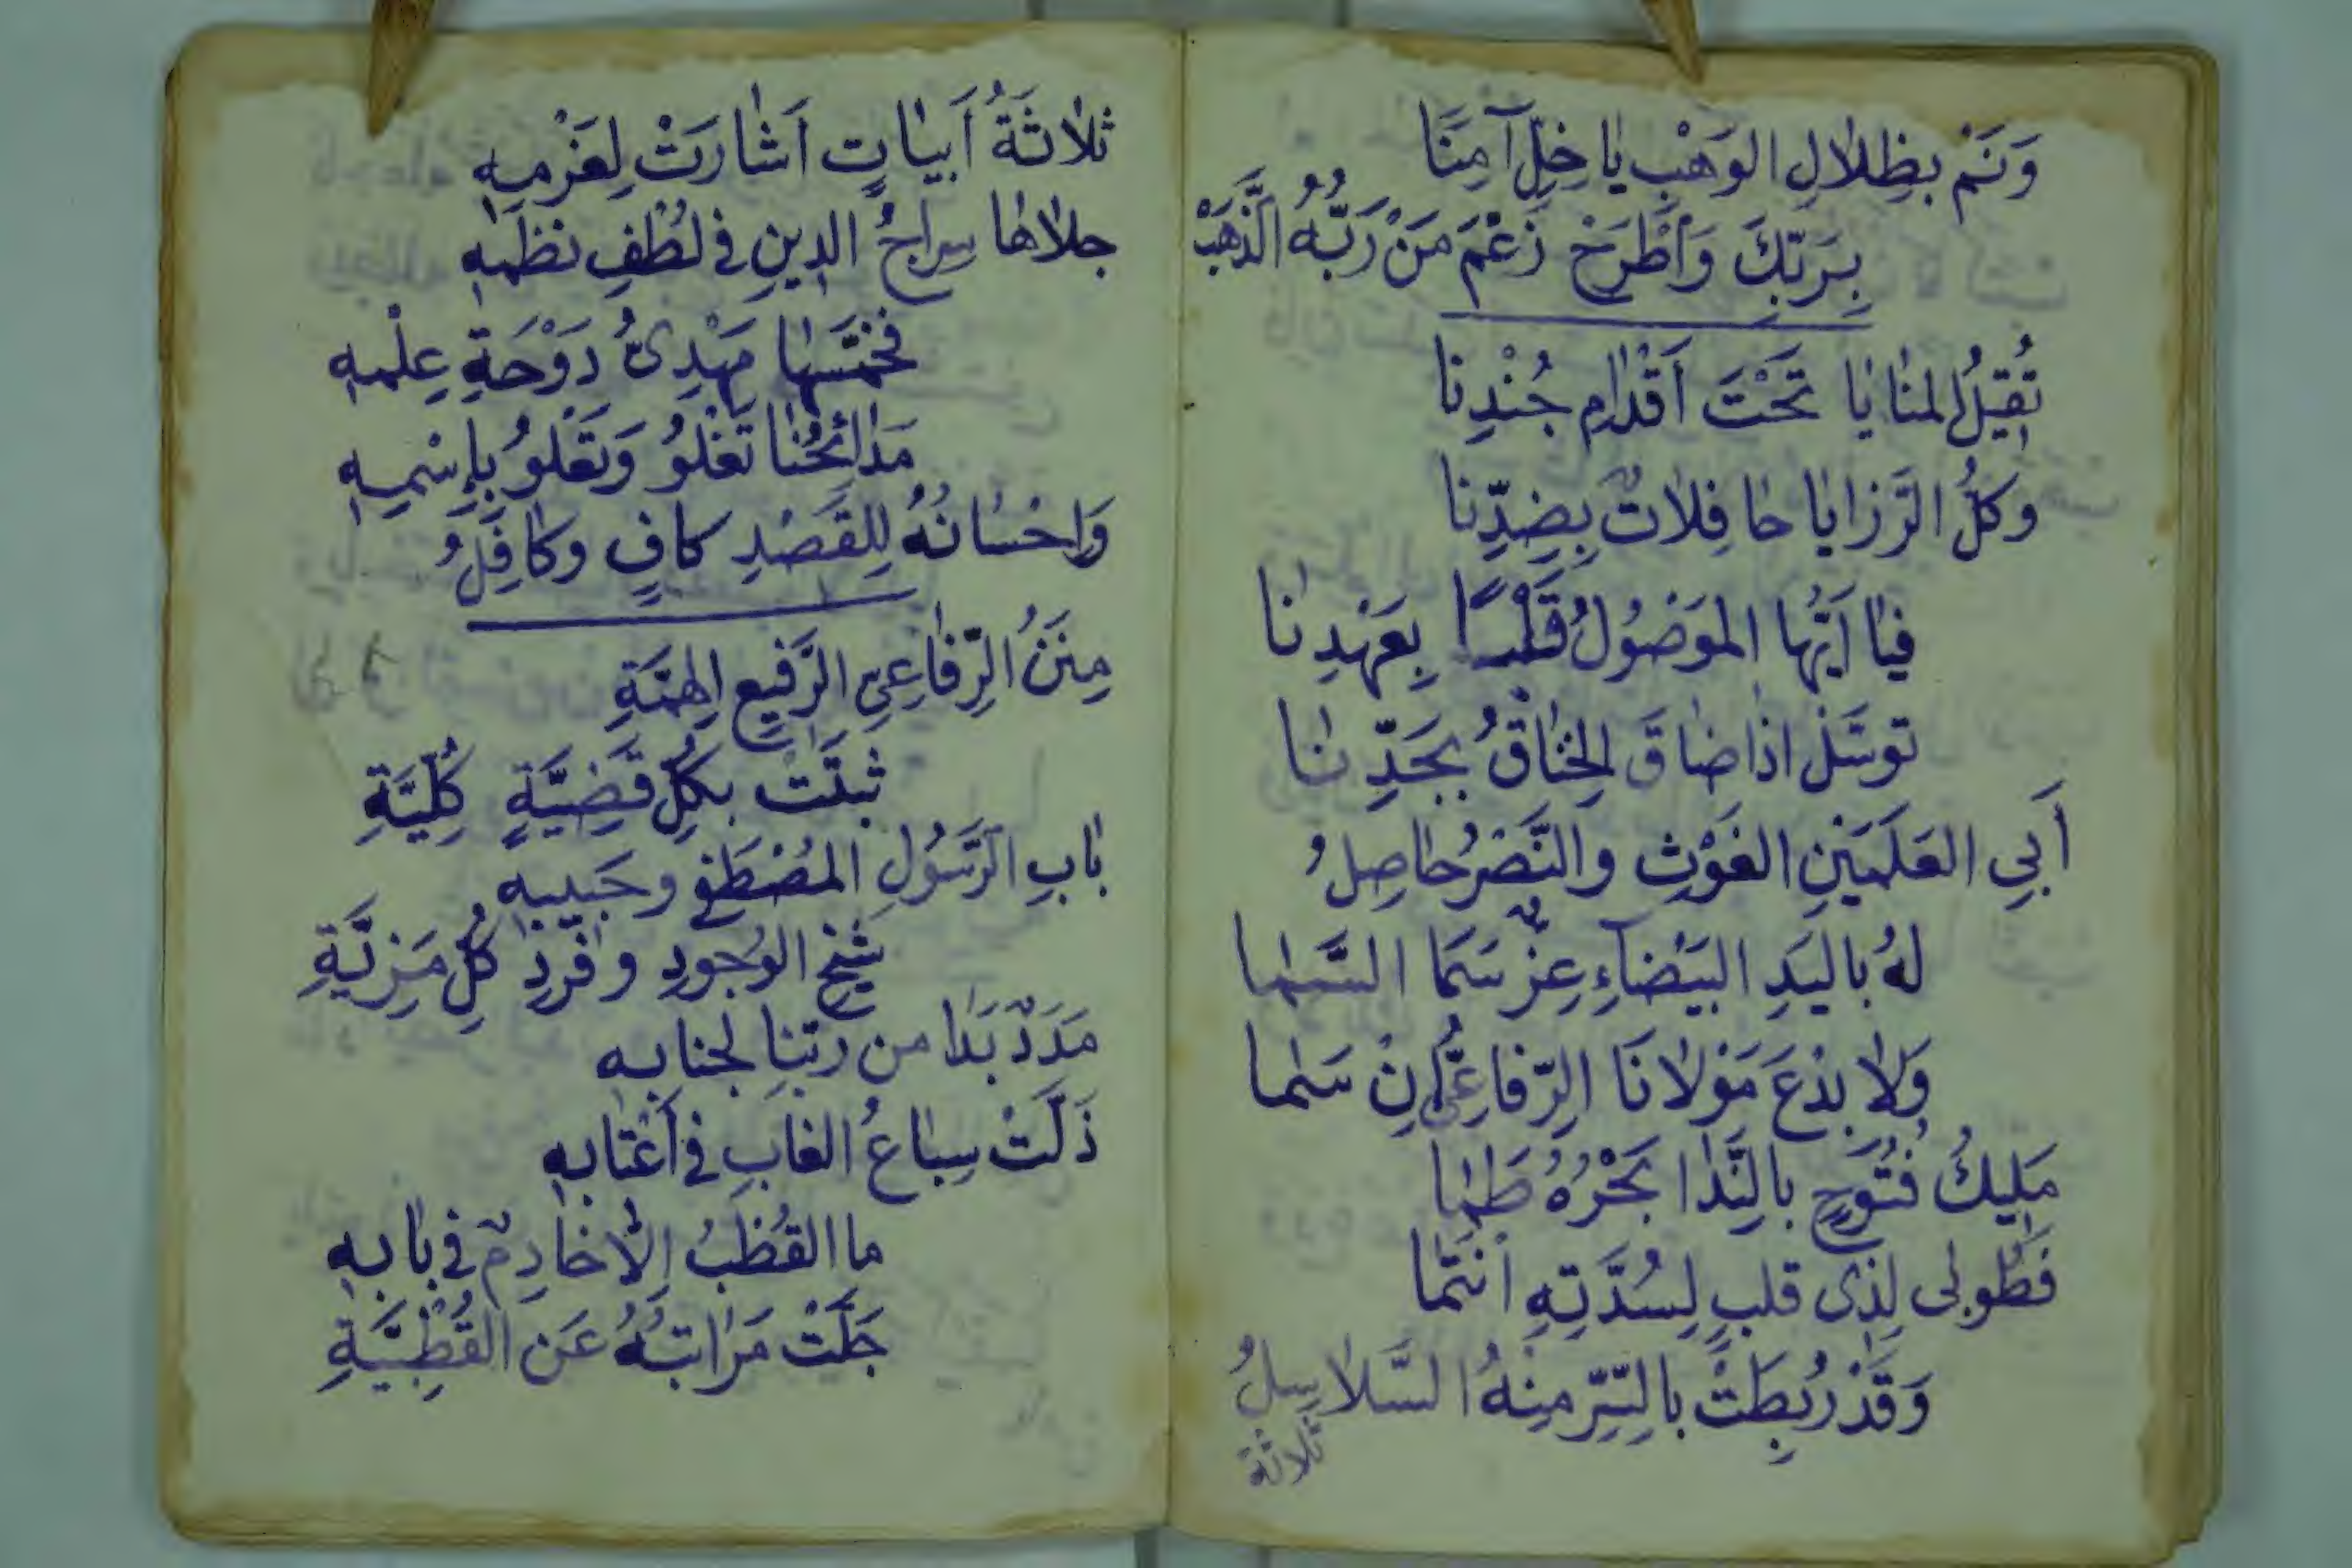 وَنَمْ بِظِلَالِ الوَهْبِ يَا خِلّ آمِنًا
بِرَبِّكَ وَاَطْرَحْ زَعْمَ مَنْ رَبُّهُ الذَّهَبْ
تُقِيلُ المنَايَا تَحْتَ أَقْدَامِ جُنْدِنَا
وَكلُّ الرَّزَايَا حَافِلَاتٌ بِضِدِّنَا
فيَا اَيُّهَا الموَصُولُ قَلْبًا بِعَهْدِنَا
توسَّلْ اذَا ضَاقَ الخِنَاقُ بِجَدِّنَا
أَبِي العَلَمَيْنِ الغَوْثِ والنَّصْرُ حَاصِلُ
لهُ باليَدِ البَيْضَاءِ عِزٌّ سَمَا السَّمَا
وَلَا بِدْعَ مَوْلَانَا الرِّفَاعِيُّ اِنْ سَمَا
مَلِيكُ فُتُوحٍ بالنَّدَا بَحْرُهُ طَمَا
فَطُوبى لِذى قلبٍ لِسُدَّتِهِ انْتَمَا
وَقَدْ رُبِطَتْ بالسِّرِّ مِنْهُ السَّلَاسِلُ
ثلاثة
ثلَاثَةُ أَبيَاتٍ اَشَارَتْ لِعَزْمِهِ
جلَاهَا سِرَاجُ الدِينِ فى لُطْفِ نظمِهِ
فَخَمَّسَهَا مَهْدِىُّ دَوْحَةِ عِلْمِهِ
مَدَائحُنَا تَغْلُو وَتَعْلُو بِاِسْمِهِ
وَاِحْسَانُهُ لِلقَصْدِ كافٍ وكافِلُ
مِنَنُ الرِّفَاعِيِّ الرَّفِيعِ الهِمَّةِ
ثبتَتْ بِكُلِّ قَضِيَّةٍ كُلِّيَّةِ
بَابِ الرَّسُولِ المُصْطَفى وحَبِيبِهِ
شَيْخِ الوُجودِ وفَرْدِ كُلِّ مَزِيَّةِ
مَدَدٌ بَدَا من ربّنا لجنابِهِ
ذَلَّتْ سِبَاعُ الغابِ فى أَعْتَابِهِ
ما القُطْبُ اِلَّا خَادِمٌ فى بَابِهِ
جَلَّتْ مَرَاتبُهُ عَن القُطْبِيَّةِ